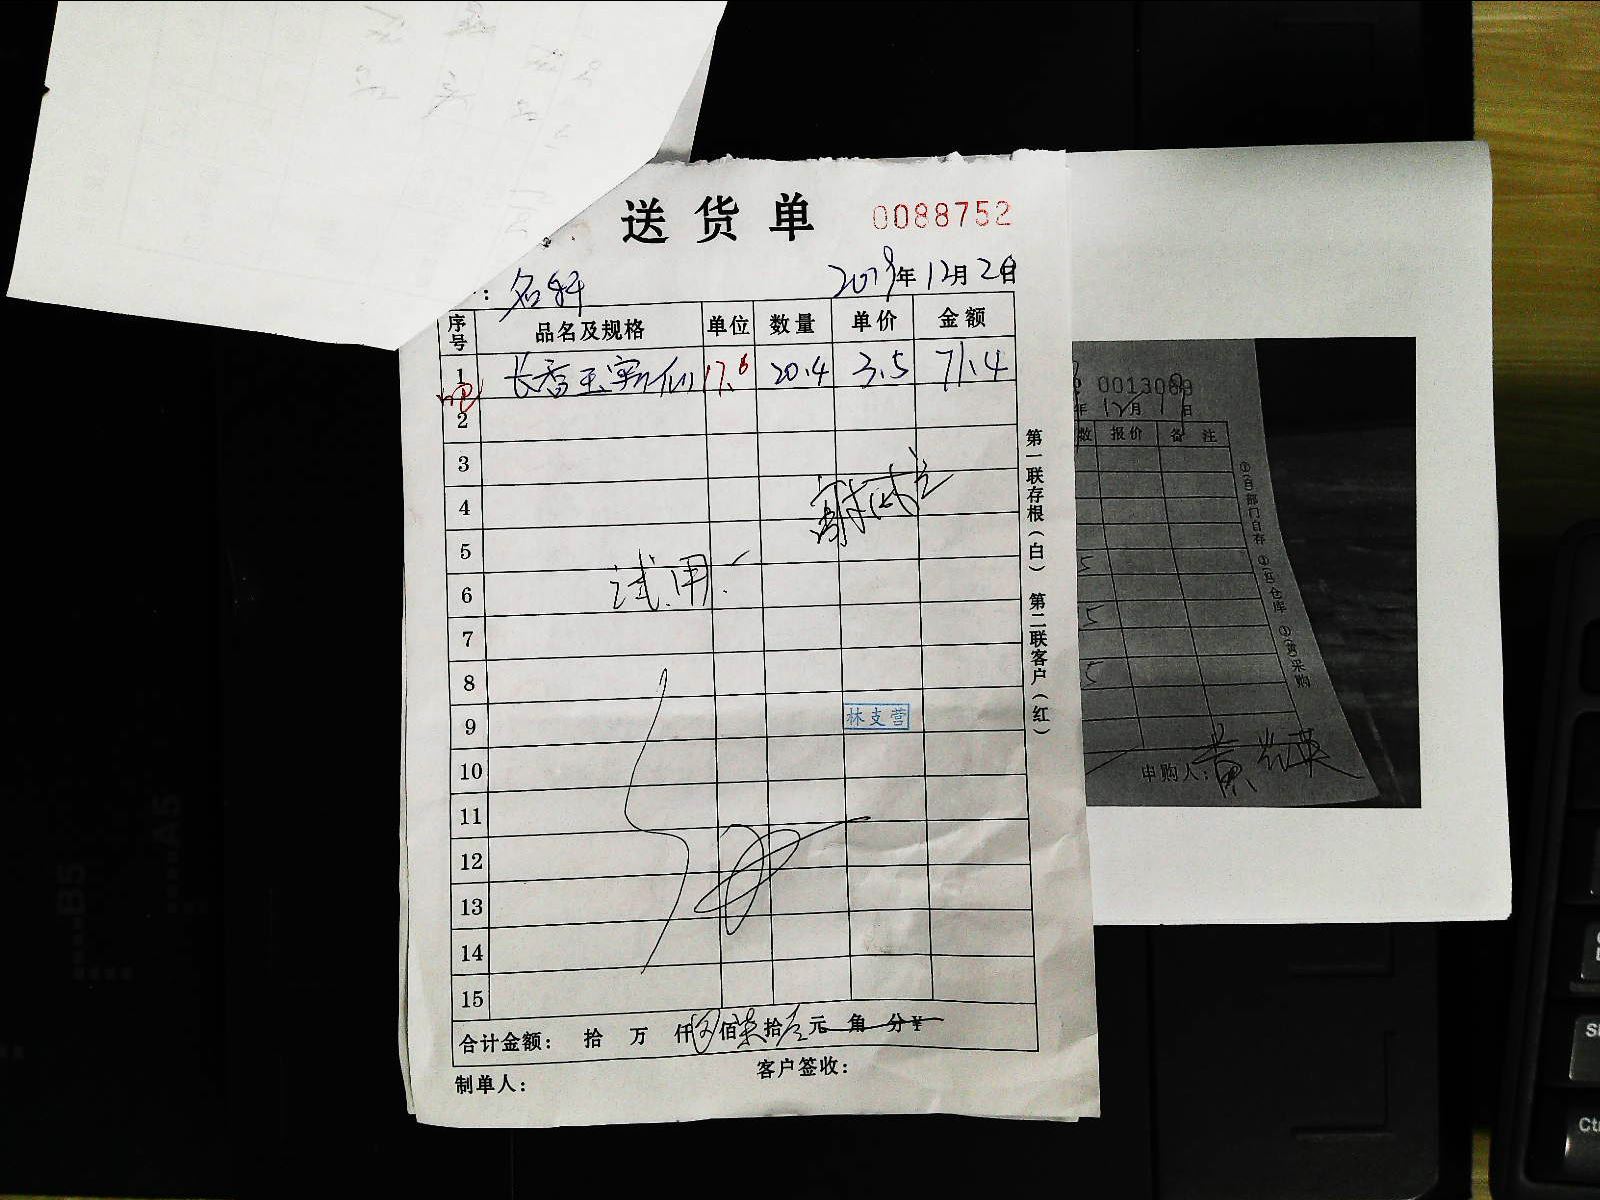 送货单 0088752
: 名轩 2019年12月2日
序号 品名及规格 单位 数量 单价 金额
1 17.6 20.4 3.5 71.4
2
3
4
5
试用
6
7
8
9 林支营
10
11
12
13
14
15
合计金额: 拾 万 仟 佰柒拾壹元 角 分¥
制单人: 客户签收:
第一联存根(白) 第二联客户(红)
0013089
年12月1日
数 报价 备注
5
5
①(白)部门自存 ②(红)仓库 ③(黄)采购
申购人:黄
B5
A5
Ctr